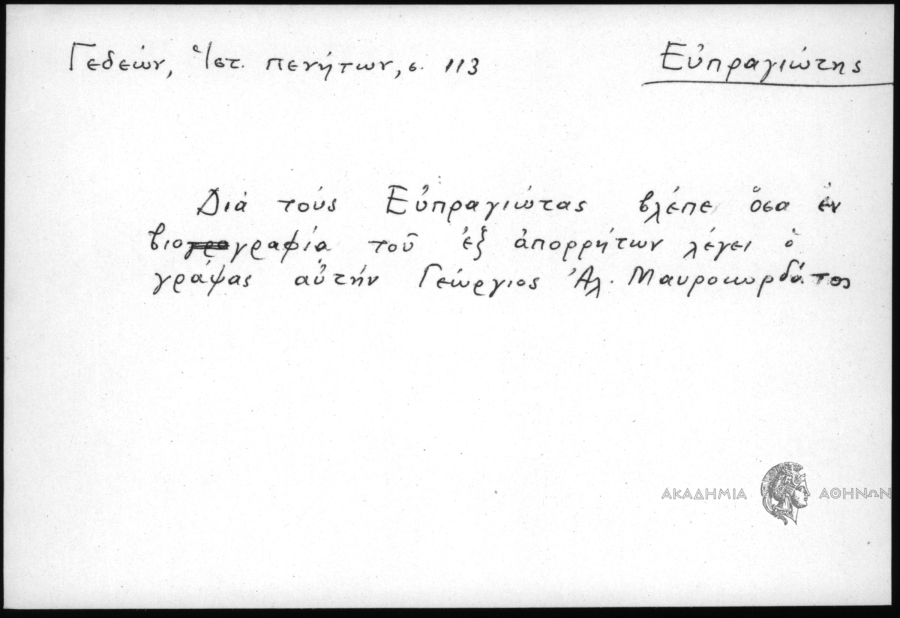 Γεδεών, Ἱστ. πενήτων, σ. 113
Εὐπραγιώτης
Διά τούς Εὐπραγιώτας βλέπε ὅσα ἐν
βιογραφία τοῦ ἐξ ἀπορρήτων λέγει ὁ
γράψας αὐτήν Γεώργιος Ἀλ. Μαυροκορδάτος
ΑΚΑΔΗΜΙΑ ΑΘΗΝΩΝ